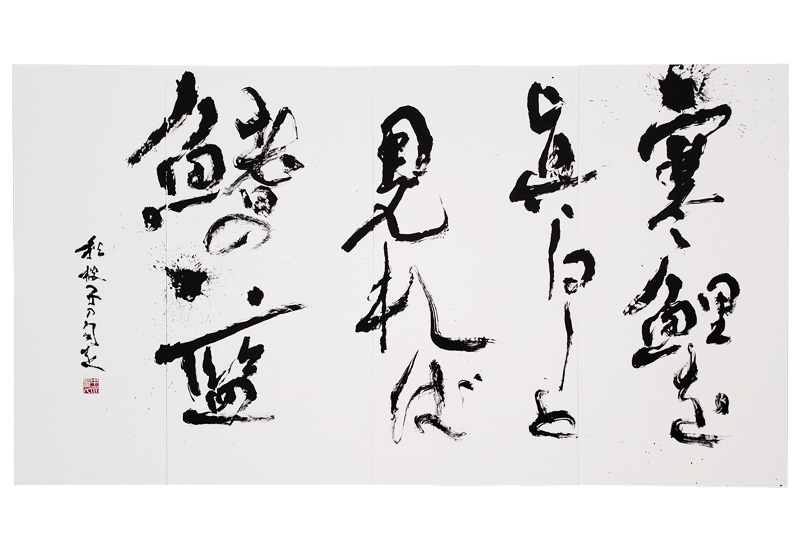 寒鯉を
眞白しと
見れば
鰭の藍
秋桜子の句を